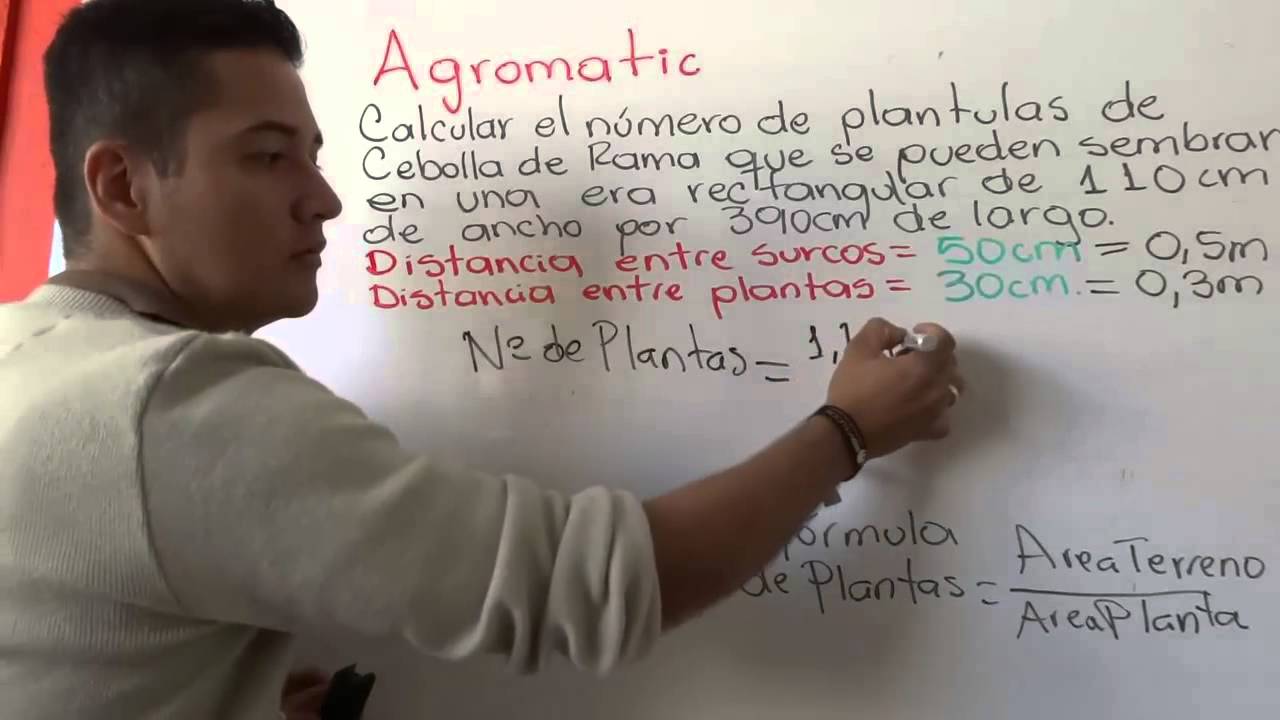 Agromatic
Calcular el número de plantulas de
Cebolla de Rama que se pueden sembrar
en una era rectangular de 110cm
de ancho por 390cm de largo.
Distancia entre surcos= 50cm = 0,5m
Distancia entre plantas= 30cm.= 0,3m
Nº de Plantas= 1,1
fórmula
de Plantas= AreaTerreno
AreaPlanta